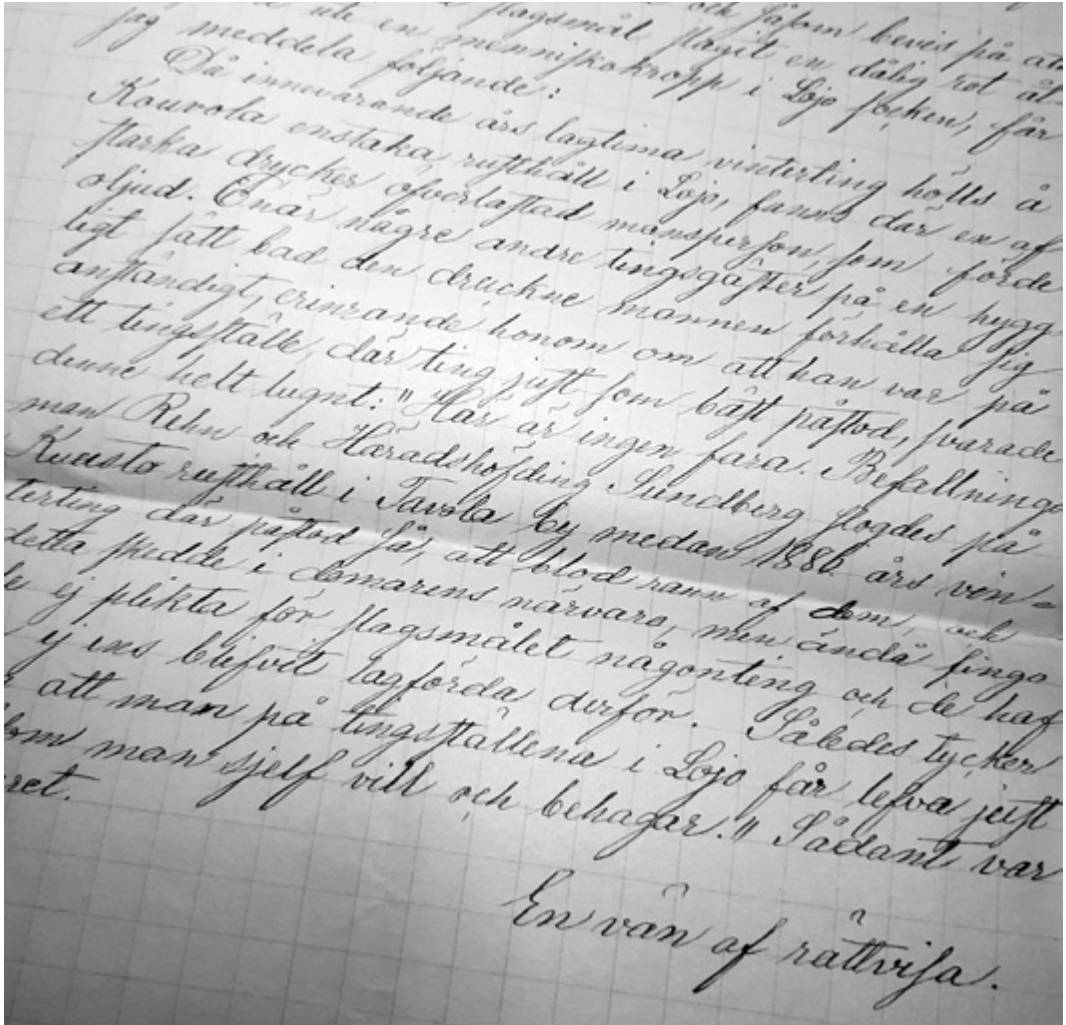 ute en slagsmål slagit en dålig rot och såsom bevis på att
en menniskokropp i Lojo socken, får
jag meddela följande:
Då innevarande års lagtima vinterting hölls å
Kouvola enstaka rusthåll i Lojo, fanns där en af
starka drycker öfverlastad mansperson, som förde
oljud. Enär någre andre tingsgäster på en hygg-
ligt sätt bad den druckne mannen förhålla sig
anständigt, erinrande honom om att han var på
ett tingsställe, där ting just som bäst påstod, svarade
denne helt lugnt: "Här är ingen fara. Befallnings
man Rehn och Häradshöfding Sundberg slogdes på
Kuusto rusthåll i Tavola by medan 1886 års vin-
terting där påstod så, att blod rann af dem, och
detta skedde i domarens närvaro, men ändå fingo
de ej plikta för slagsmålet någonting och de haf
ej ens blifvit lagförda derför. Således tycker
att man på tingsställena i Lojo får lefva just
som man sjelf vill och behagar." Sådant var
ret.
En vän af rättvisa.